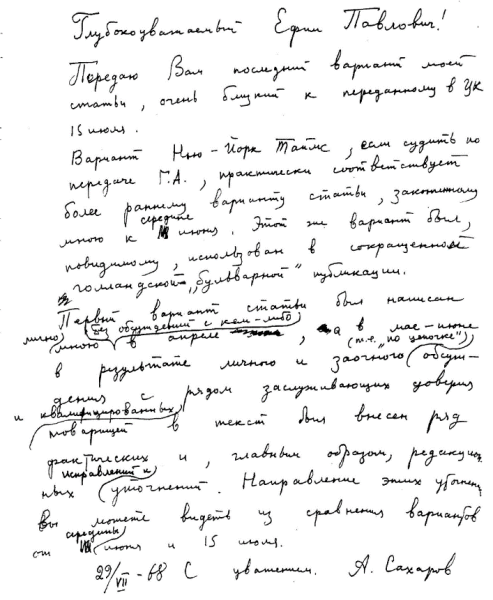 Глубокоуважаемый Ефим Павлович!
Передаю Вам последний вариант моей
статьи, очень близкий к переданному в ЦК
15 июля.
Вариант Нью-Йорк Таймс, если судить по
передаче Г.А., практически соответствует
более раннему варианту статьи, законченному
мною к середине июня. Этот же вариант был,
повидимому, использован в сокращенной
голландской „бульварной" публикации.
Первый вариант статьи был написан
лично мною без обсуждений с кем-либо в апреле, а в мае-июне
в результате личного и заочного (т.е. „по цепочке") обсуж-
дения с рядом заслуживающих доверия
и квалифицированных товарищей в текст был внесен ряд
фактических и, главным образом, редакцион-
ных исправлений и уточнений. Направление этих уточнений
Вы можете видеть из сравнения вариантов
от середины июня и 15 июля.
29/VII-68 С уважением. А. Сахаров